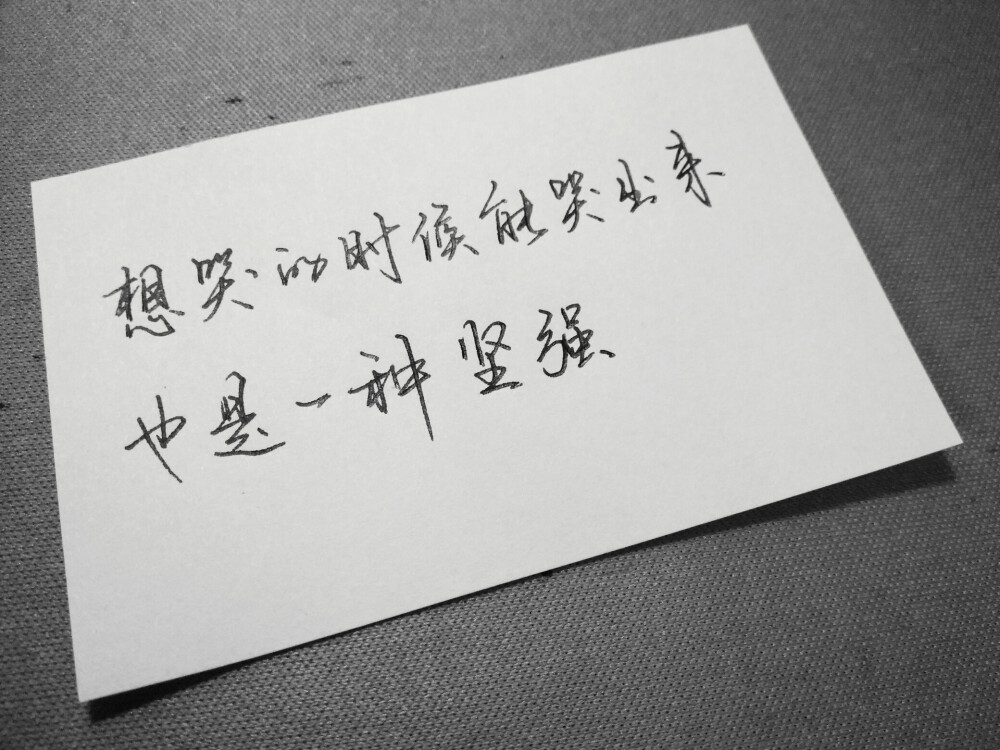 想哭的时候能哭出来
也是一种坚强